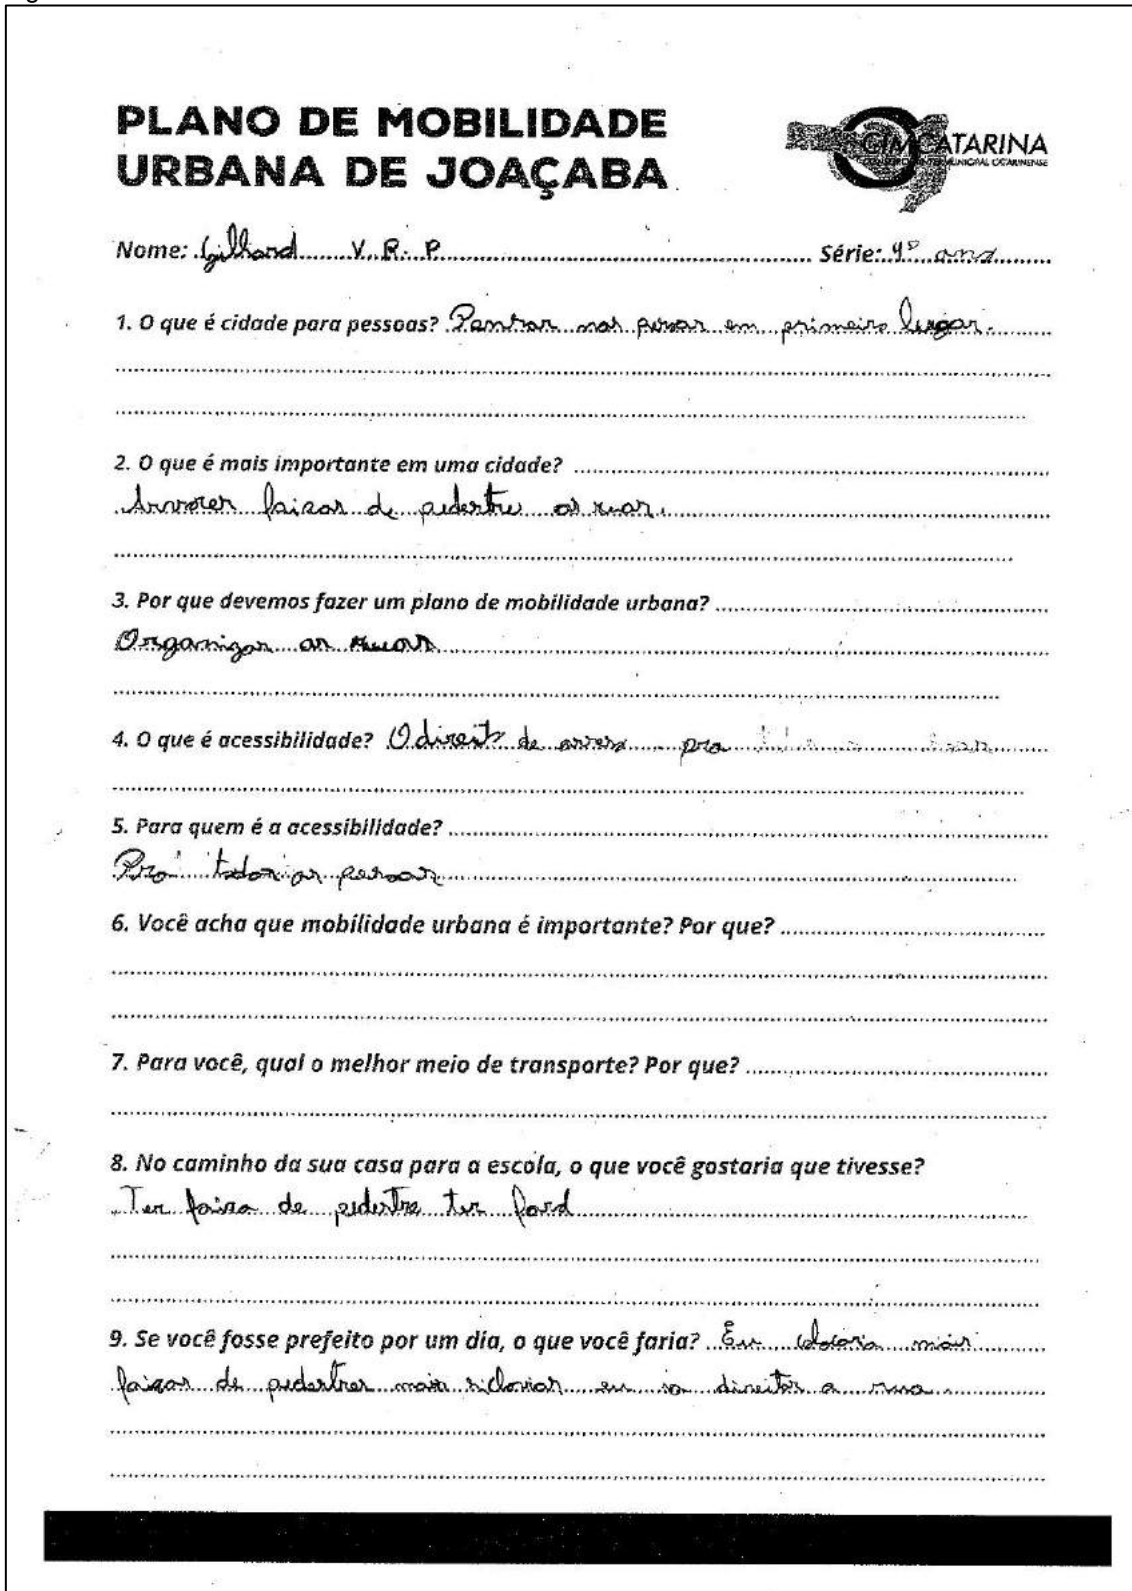 PLANO DE MOBILIDADE
URBANA DE JOAÇABA
CIMCATARINA
CONSÓRCIO INTERMUNICIPAL CATARINENSE
Nome: Gilhard V. R. P. Série: 4º ano
1. O que é cidade para pessoas? em primeiro lugar.
2. O que é mais importante em uma cidade?
faixas de pedestre as ruas.
3. Por que devemos fazer um plano de mobilidade urbana?
Organizar as ruas
4. O que é acessibilidade? O direito de pra
5. Para quem é a acessibilidade?
Pra todas as pessoas
6. Você acha que mobilidade urbana é importante? Por que?
7. Para você, qual o melhor meio de transporte? Por que?
8. No caminho da sua casa para a escola, o que você gostaria que tivesse?
Ter faixa de pedestre ter
9. Se você fosse prefeito por um dia, o que você faria? Eu mais
faixas de pedestres mais siclovias eu a rua